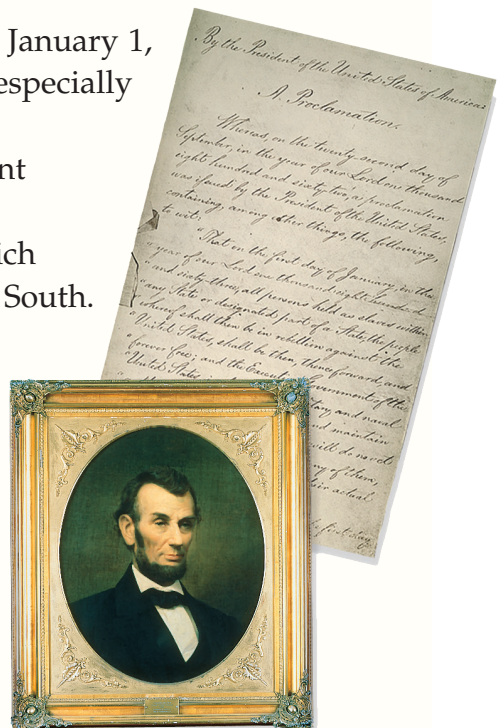 January 1,
especially
nt
ich
South.
By the President of the United States of America:
A Proclamation.
Whereas, on the twenty-second day of
September, in the year of our Lord one thousand
eight hundred and sixty two, a proclamation
was issued by the President of the United States,
containing, among other things, the following,
to wit:
"That on the first day of January, in the
"year of our Lord one thousand eight hundred
"and sixty-three, all persons held as slaves within
"any State or designated part of a State, the people
"whereof shall then be in rebellion against the
"United States, shall be then, thenceforward, and
"forever free; and the Executive Government of the
"United States
tary and naval
and maintain
will do no act
of them,
eir actual
first day